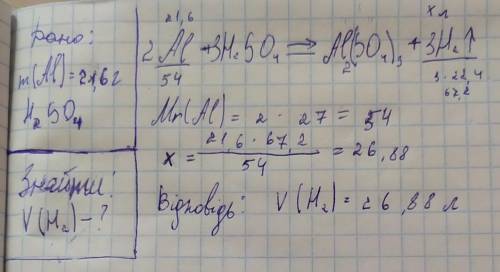 Дано:
m(Al)=21,6г
H₂SO₄
Знайти:
V(H₂)-?
21,6 x л
2Al + 3H₂SO₄ = Al₂(SO₄)₃ + 3H₂↑
54 3·22,4
67,2
Mr(Al)= 2 · 27 = 54
x = 21,6 · 67,2 / 54 = 26,88
Відповідь: V(H₂)=26,88 л